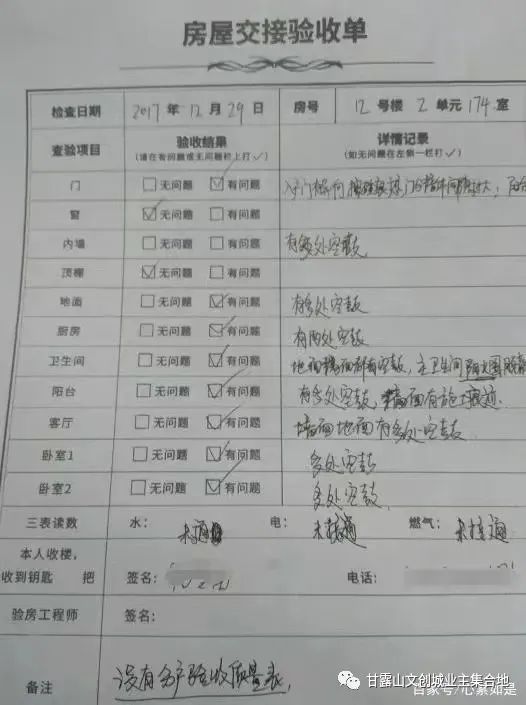 房屋交接验收单
检查日期 2017年12月29日 房号 12号楼2单元174室
查验项目 验收结果 详情记录
(请在有问题或无问题栏上打✓) (如无问题在左侧一栏打✓)
门 □无问题 ☑有问题
窗 ☑无问题 □有问题
内墙 □无问题 □有问题 有多处空鼓
顶棚 ☑无问题 □有问题
地面 □无问题 ☑有问题 有多处空鼓
厨房 □无问题 ☑有问题 有两处空鼓
卫生间 □无问题 ☑有问题 地面墙面都有空鼓,主卫生间
阳台 □无问题 ☑有问题 有多处空鼓,墙面有施工痕迹
客厅 □无问题 ☑有问题 墙面地面有多处空鼓
卧室1 □无问题 ☑有问题 多处空鼓
卧室2 □无问题 ☑有问题 多处空鼓
三表读数 水: 未通 电: 未接通 燃气: 未接通
本人收楼,
收到钥匙 把 签名: 电话:
验房工程师 签名:
备注 没有分户验收质量表.
甘露山文创城业主集合地
百家号/心素如是